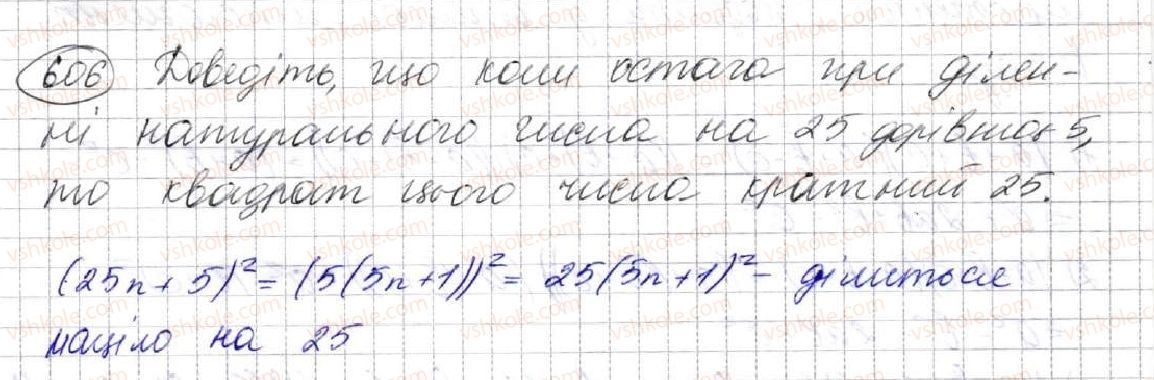 606 Доведіть, що коли остача при ділен-
ні натурального числа на 25 дорівнює 5,
то квадрат цього числа кратний 25.
(25n + 5)² = (5(5n + 1))² = 25(5n + 1)² - ділиться
націло на 25